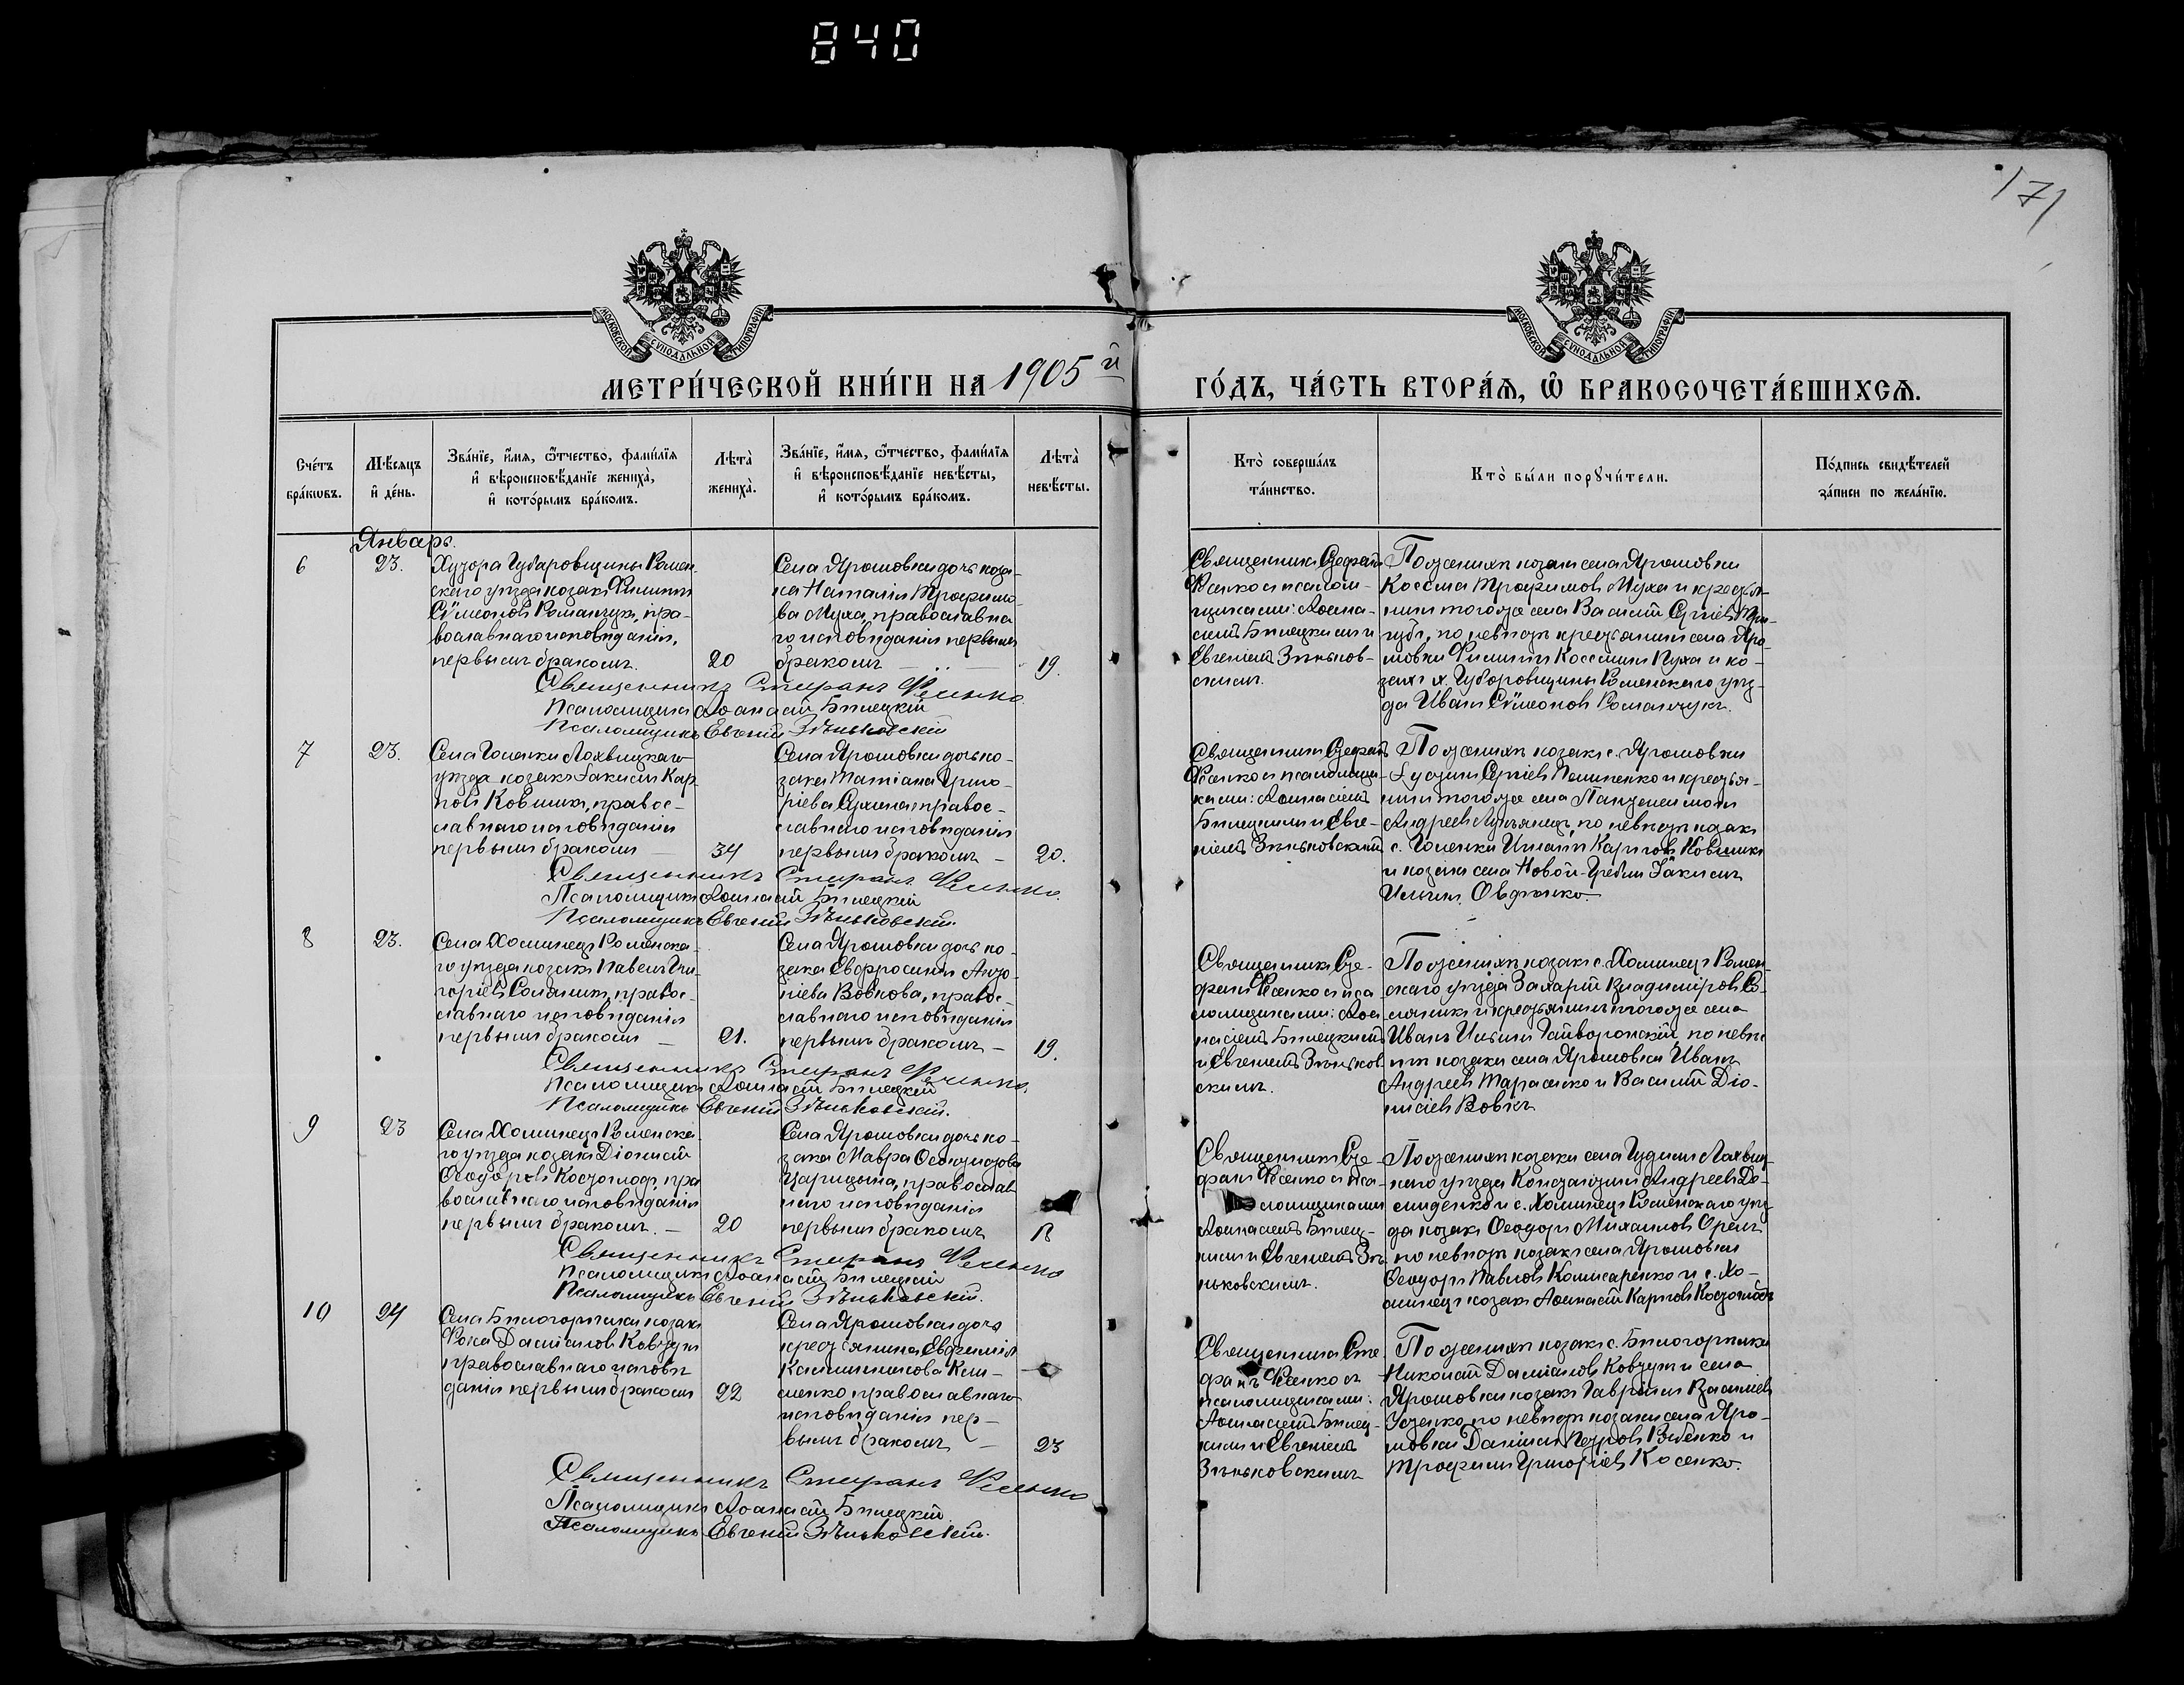 840
171
МОСКОВСКОЙ СѴНОДАЛЬНОЙ ТИПОГРАФІИ
МОСКОВСКОЙ СѴНОДАЛЬНОЙ ТИПОГРАФІИ
МЕТРИ́ЧЕСКОЙ КНИ́ГИ НА 1905 й
ГО́ДЪ, ЧА́СТЬ ВТОРА́Ѧ, Ѽ БРАКОСОЧЕТА́ВШИХСѦ.
Сче́тъ
бра́кѡвъ.
Мѣ́сяцъ
и҆ де́нь.
Зва́нїе, и҆́мѧ, ѻ҆́тчество, фами́лїѧ
и҆ вѣроисповѣ́данїе жениха̀,
и҆ кото́рымъ бра́комъ.
Лѣта̀
жениха̀.
Зва́нїе, и҆́мѧ, ѻ҆́тчество, фами́лїѧ
и҆ вѣроисповѣ́данїе невѣ́сты,
и҆ кото́рымъ бра́комъ.
Лѣта̀
невѣ́сты.
Кто̀ соверша́лъ
та́инство.
Кто̀ бы́ли порꙋчи́тели.
По́дпись свидѣ́телей
за́писи по жела́нїю.
Январь.
6
23.
Хутора Губаровщины Ромен-
скаго уѣзда козакъ Филиппъ
Сѵмеоновъ Романчукъ, пра-
вославнаго исповѣданія,
первымъ бракомъ.
20
Села Ярошовки дочь коза-
ка Наталія Трофимо-
ва Муха, православна
го исповѣданія первымъ
бракомъ
19.
Священникъ Стефанъ
Фесенко и псалом-
щиками: Аѳана-
сіемъ Бѣлецкимъ и
Евгеніемъ Зѣньков-
скимъ.
По женихѣ козаки села Ярошовки
Косьма Трофимовъ Муха и крестья-
нинъ того же села Василій Сергіевъ
по невѣстѣ крестьянинъ села Яро-
шовки Филиппъ Космин и ко-
закъ х. Губоровщины Роменскаго уѣз-
да Иванъ Сѵмеоновъ Романчукъ.
Священникъ Стефанъ Фесенко
Псаломщикъ Аѳанасій Бѣлецкій
Псаломщикъ Евгеній Зѣньковскій
7
23.
Села Голенки Лохвицкаго
уѣзда козакъ Іакимъ Кар-
повъ Ковшикъ, правос-
лавнаго исповѣданія
первымъ бракомъ
34
Села Ярошовки дочь ко-
зака Татіана Григо-
ріева правос-
лавнаго исповѣданія
первымъ бракомъ
20.
Священникъ Стефанъ
Фесенко и псаломщи-
ками: Аѳанасіемъ
Бѣлецкимъ и Евге-
ніемъ Зѣньковскимъ
По женихѣ козакъ с. Ярошовки
Сергіевъ и крестья-
нинъ того же села Пантелеимонъ
Андреевъ Лукьянецъ, по невѣстѣ козакъ
с. Голенки Карповъ Ковшикъ
и козакъ села Новой-Гребли Іакимъ
Ильинъ Овдіенко.
Священникъ Стефанъ Фесенко.
Псаломщикъ Аѳанасій Бѣлецкій
Псаломщикъ Евгеній Зѣньковскій.
8
23.
Села Хоминецъ Роменска-
го уѣзда козакъ Павелъ Гри-
горіевъ правос-
лавнаго исповѣданія
первымъ бракомъ
21.
Села Ярошовки дочь ко-
зака Евфросинія Анто-
ніева Вовкова, правос-
лавнаго исповѣданія
первымъ бракомъ
19.
Священникъ Сте-
фанъ Фесенко и пса
ломщиками: Аѳа
насіемъ Бѣлецкимъ
и Евгеніемъ Зѣньков
скимъ.
По женихѣ козакъ с. Хоминецъ Ромен-
скаго уѣзда Захарій Владиміровъ
и крестьянинъ того же села
Иванъ Ильинъ Гайворонскій, по невѣс
тѣ козаки села Ярошовки Иванъ
Андреевъ Тарасенко и Василій Діо-
нисіевъ Вовкъ
Священникъ Стефанъ Фесенко.
Псаломщикъ Аѳанасій Бѣлецкій
Псаломщикъ Евгеній Зѣньковскій.
9
23
Села Хоминецъ Роменска-
го уѣзда козакъ Діонисій
Ѳеодоровъ Костоглодъ, пра
вославнаго исповѣданія
первымъ бракомъ.
20
Села Ярошовки дочь ко-
зака Мавра Ѳеоктистова
Царицына, православ
наго исповѣданія
первымъ бракомъ
18
Священникъ Сте-
фанъ Фесенко и пса-
ломщиками
Аѳанасіемъ Бѣлец-
кимъ и Евгеніемъ Зѣ-
ньковскимъ.
По женихѣ козаки села Гудимъ Лохвиц-
каго уѣзда Константинъ Андреевъ Де-
миденко и с. Хоминецъ Роменскаго уѣз
да козакъ Ѳеодоръ Михаиловъ Орелъ
по невѣстѣ козакъ села Ярошовки
Ѳеодоръ Павловъ Комисаренко и с. Хо-
минецъ козакъ Аѳанасій Карповъ Костоглодъ
Священникъ Стефанъ Фесенко
Псаломщикъ Аѳанасій Бѣлецкій
Псаломщикъ Евгеній Зѣньковскій.
10
24
Села Бѣлогорѣлки козакъ
Фока Даміановъ Ковтунъ
православнаго исповѣ
данія первымъ бракомъ
22
Села Ярошовки дочь
крестьянина Евфимія
Каллиникова Кли-
менко православнаго
исповѣданія пер-
вымъ бракомъ
23
Священникъ Сте
фанъ Фесенко и
псаломщиками:
Аѳанасіемъ Бѣлец-
кимъ и Евгеніемъ
Зѣньковскимъ
По женихѣ козакъ с. Бѣлогорѣлки
Николай Даміановъ Ковтунъ и села
Ярошовки козакъ Гавріилъ Василіевъ
Усенко, по невѣстѣ козаки села Яро-
шовки Даніилъ Петровъ и
Трофимъ Григоріевъ Косенко.
Священникъ Стефанъ Фесенко
Псаломщикъ Аѳанасій Бѣлецкій.
Псаломщикъ Евгеній Зѣньковскій.